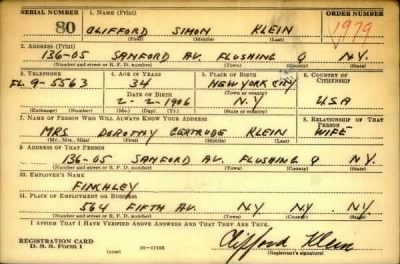 SERIAL NUMBER 1. NAME (Print) ORDER NUMBER
80 CLIFFORD SIMON KLEIN 1979
(First) (Middle) (Last)
2. ADDRESS (Print)
136-05 SANFORD AV. FLUSHING Q N.Y.
(Number and street or R. F. D. number) (Town) (County) (State)
3. TELEPHONE 4. AGE IN YEARS 5. PLACE OF BIRTH 6. COUNTRY OF CITIZENSHIP
FL. 9-5563 34 NEW YORK CITY
DATE OF BIRTH (Town or county)
2-2-1906 N.Y U.S.A
(Exchange) (Number) (Mo.) (Day) (Yr.) (State or country)
7. NAME OF PERSON WHO WILL ALWAYS KNOW YOUR ADDRESS 8. RELATIONSHIP OF THAT PERSON
MRS. DOROTHY GERTRUDE KLEIN WIFE
(Mr., Mrs., Miss) (First) (Middle) (Last)
9. ADDRESS OF THAT PERSON
136-05 SANFORD AV. FLUSHING Q N.Y.
(Number and street or R. F. D. number) (Town) (County) (State)
10. EMPLOYER'S NAME
FINCHLEY
11. PLACE OF EMPLOYMENT OR BUSINESS
564 FIFTH AV. N.Y. N.Y. N.Y.
(Number and street or R. F. D. number) (Town) (County) (State)
I AFFIRM THAT I HAVE VERIFIED ABOVE ANSWERS AND THAT THEY ARE TRUE.
REGISTRATION CARD
D. S. S. Form 1 (over) 16—17105 Clifford Klein
(Registrant's signature)